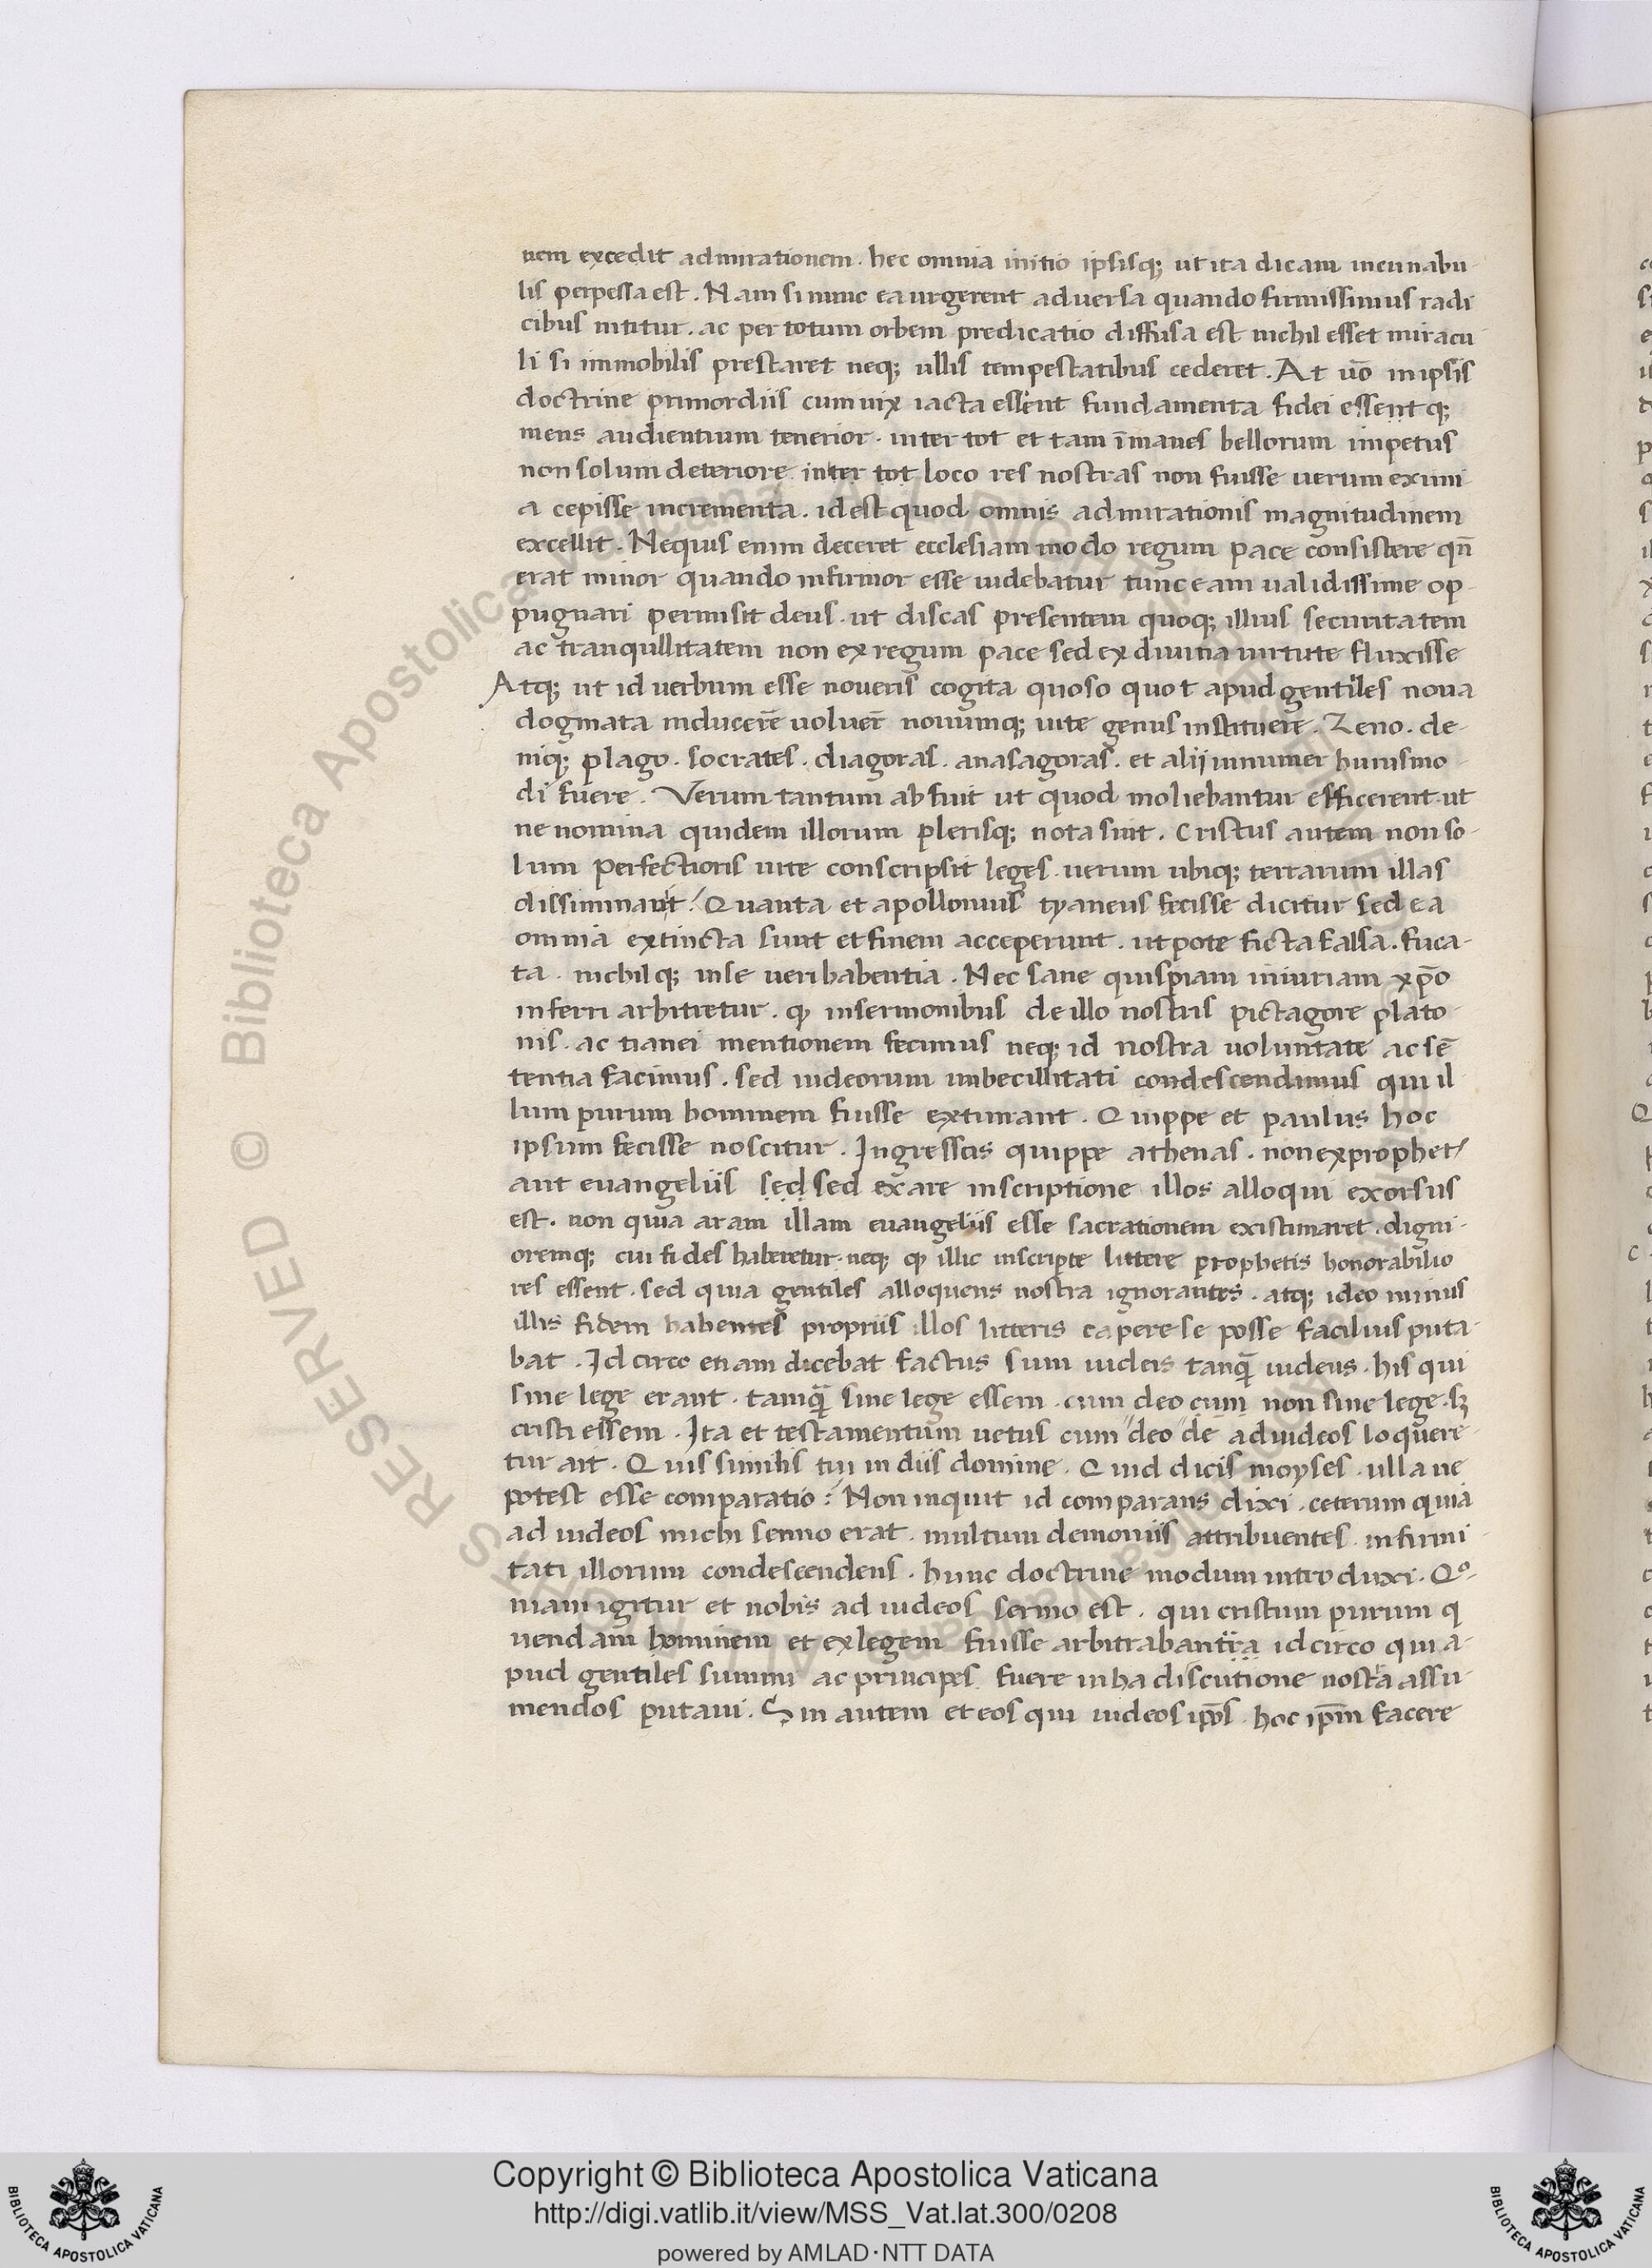 nem excedit admirationem. hec omnia initio ipsisq; ut ita dicam incunabu
lis perpessa est. Nam si nunc ea urgerent adversa quando firmissimus radi
cibus nititur. ac per totum orbem predicatio diffusa est nichil esset miracu
li si immobilis prestaret neq; ullis tempestatibus cederet. At uo᷃ in ipsis
doctrine primordiis cum uix iacta essent fundamenta fidei essent q;
mens audientium tenerior. inter tot et tam īmanes bellorum impetus
non solum deteriore inter tot loco res nostras non fuisse uerum eximi
a cepisse incrementa. id est quod omnis admirationis magnitudinem
excellit. Nequis enim deceret ecclesiam modo regum pace consistere qn̄
erat minor quando infirmior esse uidebatur tunc eam ualidissime op
pugnari permisit deus. ut discas presentem quoq; illius securitatem
ac tranqullitatem non ex regum pace sed ex diuina uirtute fluxisse
Atq; ut id uerbum esse noueris cogita quoso quot apud gentiles noua
dogmata inducere᷃ uoluer᷃ nouumq; uite genus instituere᷃. Zeno. de-
niq; plago. socrates. diagoras. anasagoras. et alij innumer huiusmo
di fuere. Verum tantum abfuit ut quod moliebantur efficerent. ut
ne nomina quidem illorum plerisq; nota sint. Cristus autem non so-
lum perfectioris uite conscripsit leges. uerum ubiq; terrarum illas
dissiminauit. Quanta et apollonius tyaneus fecisse dicitur sed ea
omnia extincta sunt et finem acceperunt. ut pote ficta falsa. fuca-
ta. nichilq; in se ueri habentia. Nec sane quispiam iniuriam xp̄o
inferri arbitretur. ꝙ in sermonibus de illo nostris pictagore plato
nis. ac tianei mentionem fecimus neq; id nostra uoluntate ac sē
tentia facimus. sed iudeorum imbecillitati condescendimus qui il
lum purum hominem fuisse extimant. Quippe et paulus hoc
ipsum fecisse noscitur. Ingressus quippe athenas. non ex prophet
aut euangeliis sed sed ex are inscriptione illos alloqui exorsus
est. non quia aram illam euangeliis esse sacrationem existimaret. digni-
oremq; cui fides haberetur. neq; ꝙ illic inscripte littere prophetis honorabilio
res essent. sed quia gentiles alloquens nostra ignorantes. atq; ideo minus
illis fidem habentes propriis illos litteris capere se posse facilius puta-
bat. Id circo etiam dicebat factus sum iudeis tanq̄ iudeus. his qui
sine lege erant. tamq̄ sine lege essem. cum deo cum non sine lege. sꝫ
cristi essem. Ita et testamentum uetus cum deo de ad iudeos loquere
tur ait. Quis similis tui in diis domine. Quid dicis moyses. ulla ne
potest esse comparatio? Non inquit id comparans dixi. ceterum quia
ad iudeos michi sermo erat. multum demoniis attribuentes. infirmi
tati illorum condescendens. hunc doctrine modum introduxi. Qº-
niam igitur et nobis ad iudeos sermo est. qui cristum purum q
uendam hominem et exlegem fuisse arbitrabantur id circo qui a-
pud gentiles summi ac principes fuere in ha discutione nostra assu
mendos putaui. Sin autem et eos qui iudeos ip̄os. hoc ip̄m facere
Copyright © Biblioteca Apostolica Vaticana
http://digi.vatlib.it/view/MSS_Vat.lat.300/0208
powered by AMLAD·NTT DATA
BIBLIOTECA APOSTOLICA VATICANA
BIBLIOTECA APOSTOLICA VATICANA